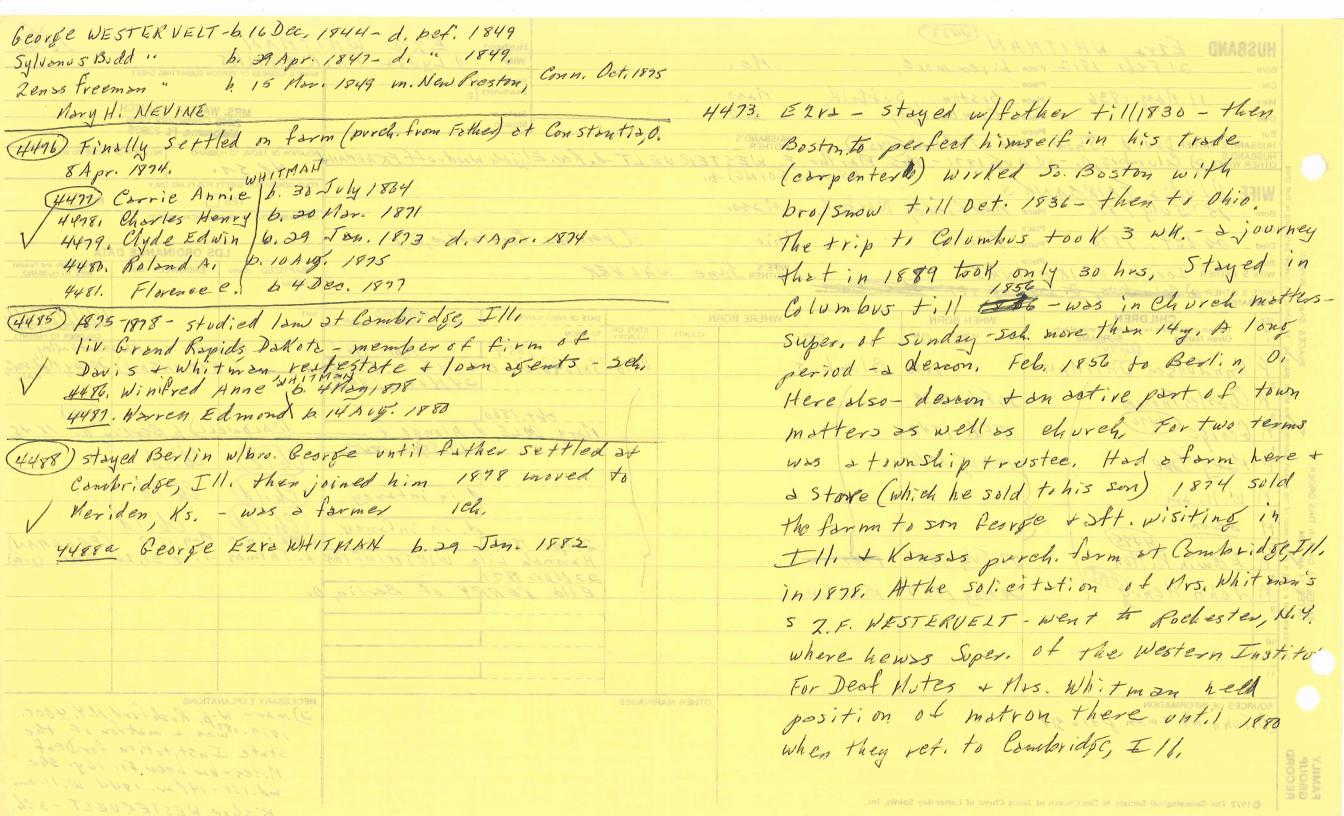 George WESTERVELT - b. 16 Dec. 1844 - d. bef. 1849
Sylvanus Budd " b. 29 Apr. 1847 - d. " 1849.
Zenas Freeman " b. 15 Mar. 1849 m. New Preston, Conn. Oct. 1875
Mary H. NEVINE
4476 Finally settled on farm (purch. from Father) at Constantia, O.
8 Apr. 1874.
WHITMAN
4477 Carrie Annie b. 30 July 1864
4478. Charles Henry b. 20 Mar. 1871
4479. Clyde Edwin b. 29 Jan. 1873 d. 1 Apr. 1874
4480. Roland A. b. 10 Aug. 1875
4481. Florence E. b 4 Dec. 1877
4485 1875-1878 - studied law at Cambridge, Ill.
liv. Grand Rapids Dakota - member of firm of
Davis & Whitman real estate & loan agents - 2ch.
WHITMAN
4486. Winifred Anne b. 4 May 1878
4487. Warren Edmond b. 14 Aug. 1880
4488 stayed Berlin w/bro. George until father settled at
Cambridge, Ill. then joined him 1878 moved to
Meriden, Ks. - was a farmer 1ch.
4488a George Ezra WHITMAN b. 29 Jan. 1882
4473. Ezra - stayed w/father till 1830 - then
Boston to perfect himself in his trade
(carpenter) worked So. Boston with
bro/Snow till Oct. 1836 - then to Ohio.
The trip to Columbus took 3 wk. - a journey
that in 1889 took only 30 hrs. Stayed in
Columbus till 1856 - was in Church matters -
Super. of Sunday-sch. more than 14y. A long
period - a deacon. Feb. 1856 to Berlin, O.
Here also - deacon & an active part of town
matters as well as church. For two terms
was a township trustee. Had a farm here &
a Store (which he sold to his son) 1874 sold
the farm to son George & aft. visiting in
Ill. & Kansas purch. farm at Cambridge, Ill.
in 1878. At the solicitation of Mrs. Whitman's
s Z.F. WESTERVELT - went to Rochester, N.Y.
where he was Super. of the Western Institu
For Deaf Mutes & Mrs. Whitman held
position of matron there until 1880
when they ret. to Cambridge, Ill.